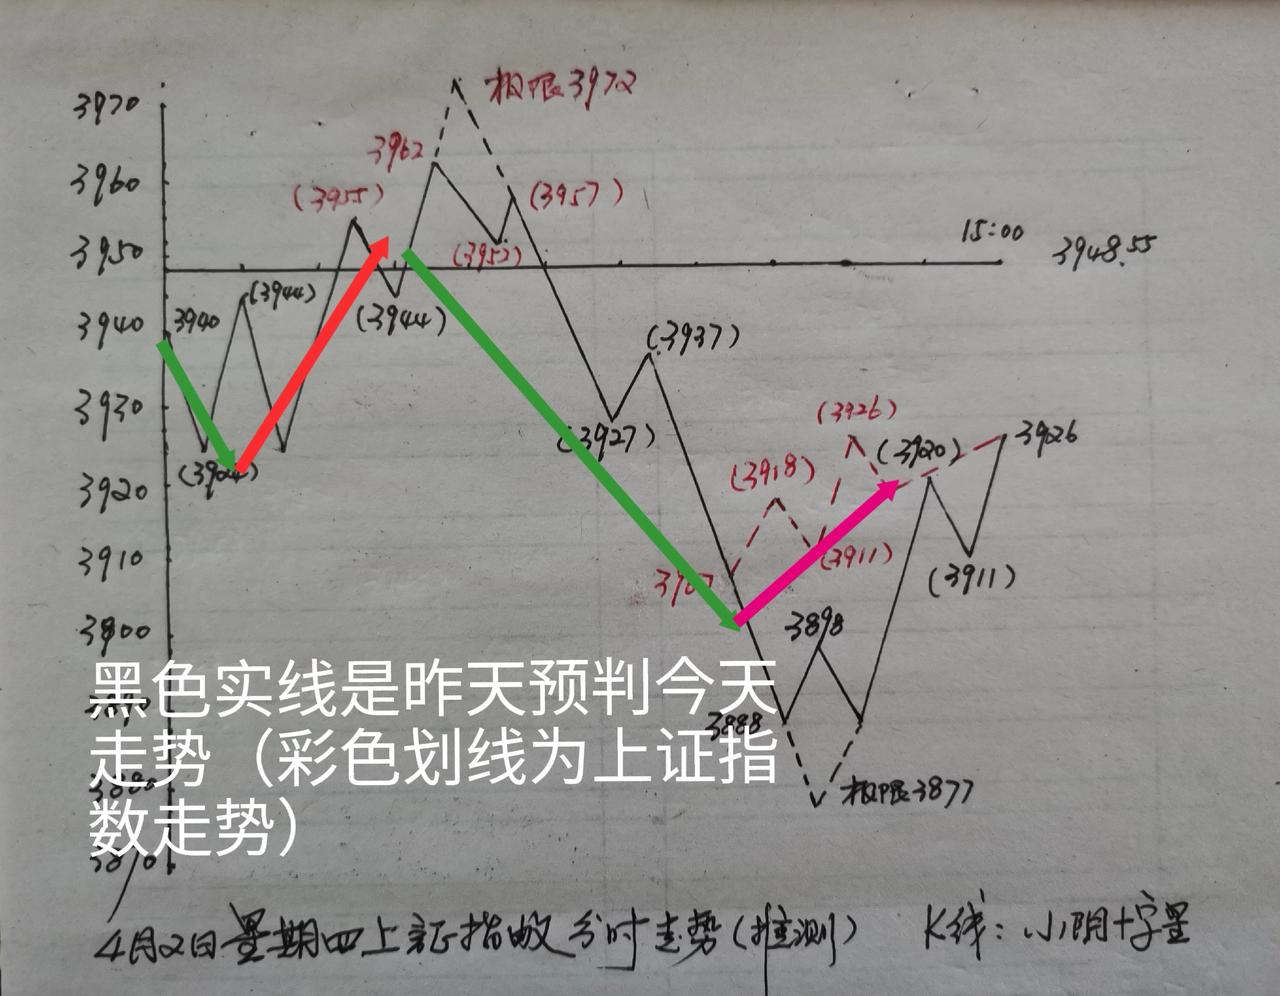 极限3972
3970
3962
3960
(3955)
(3957)
15:00
3948.55
3950
(3952)
(3944)
3940
3940
(3944)
(3937)
3930
(3927)
(3926)
(3920)
3926
(3924)
(3918)
3920
3910
(3911)
(3911)
3907
3900
3898
黑色实线是昨天预判今天
3888
走势（彩色划线为上证指
3880
极限3877
数走势）
3870
4月2日星期四上证指数分时走势(推测) K线:小阴十字星